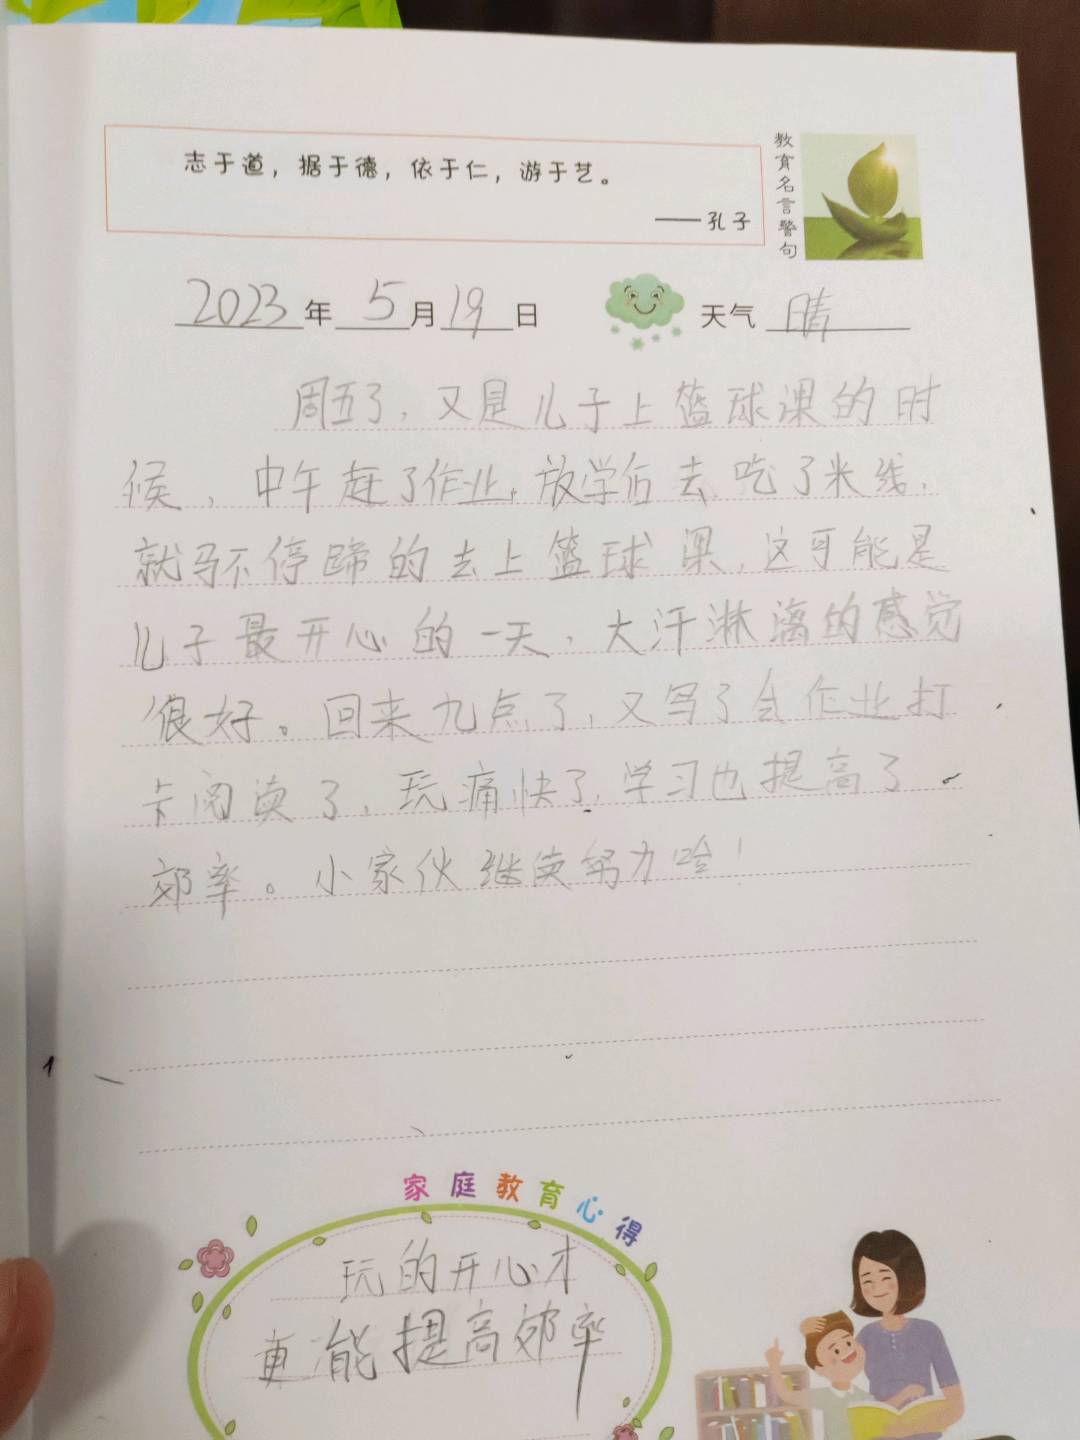 志于道，据于德，依于仁，游于艺。
——孔子
教育名言警句
2023年5月19日 天气 晴
周五了，又是儿子上篮球课的时
候，中午赶了作业，放学后去吃了米线，
就马不停蹄的去上篮球课，这可能是
儿子最开心的一天，大汗淋漓的感觉
很好。回来九点了，又写了会作业打
卡阅读了，玩痛快了，学习也提高了
效率。小家伙继续努力哈！
家庭教育心得
玩的开心才
更能提高效率